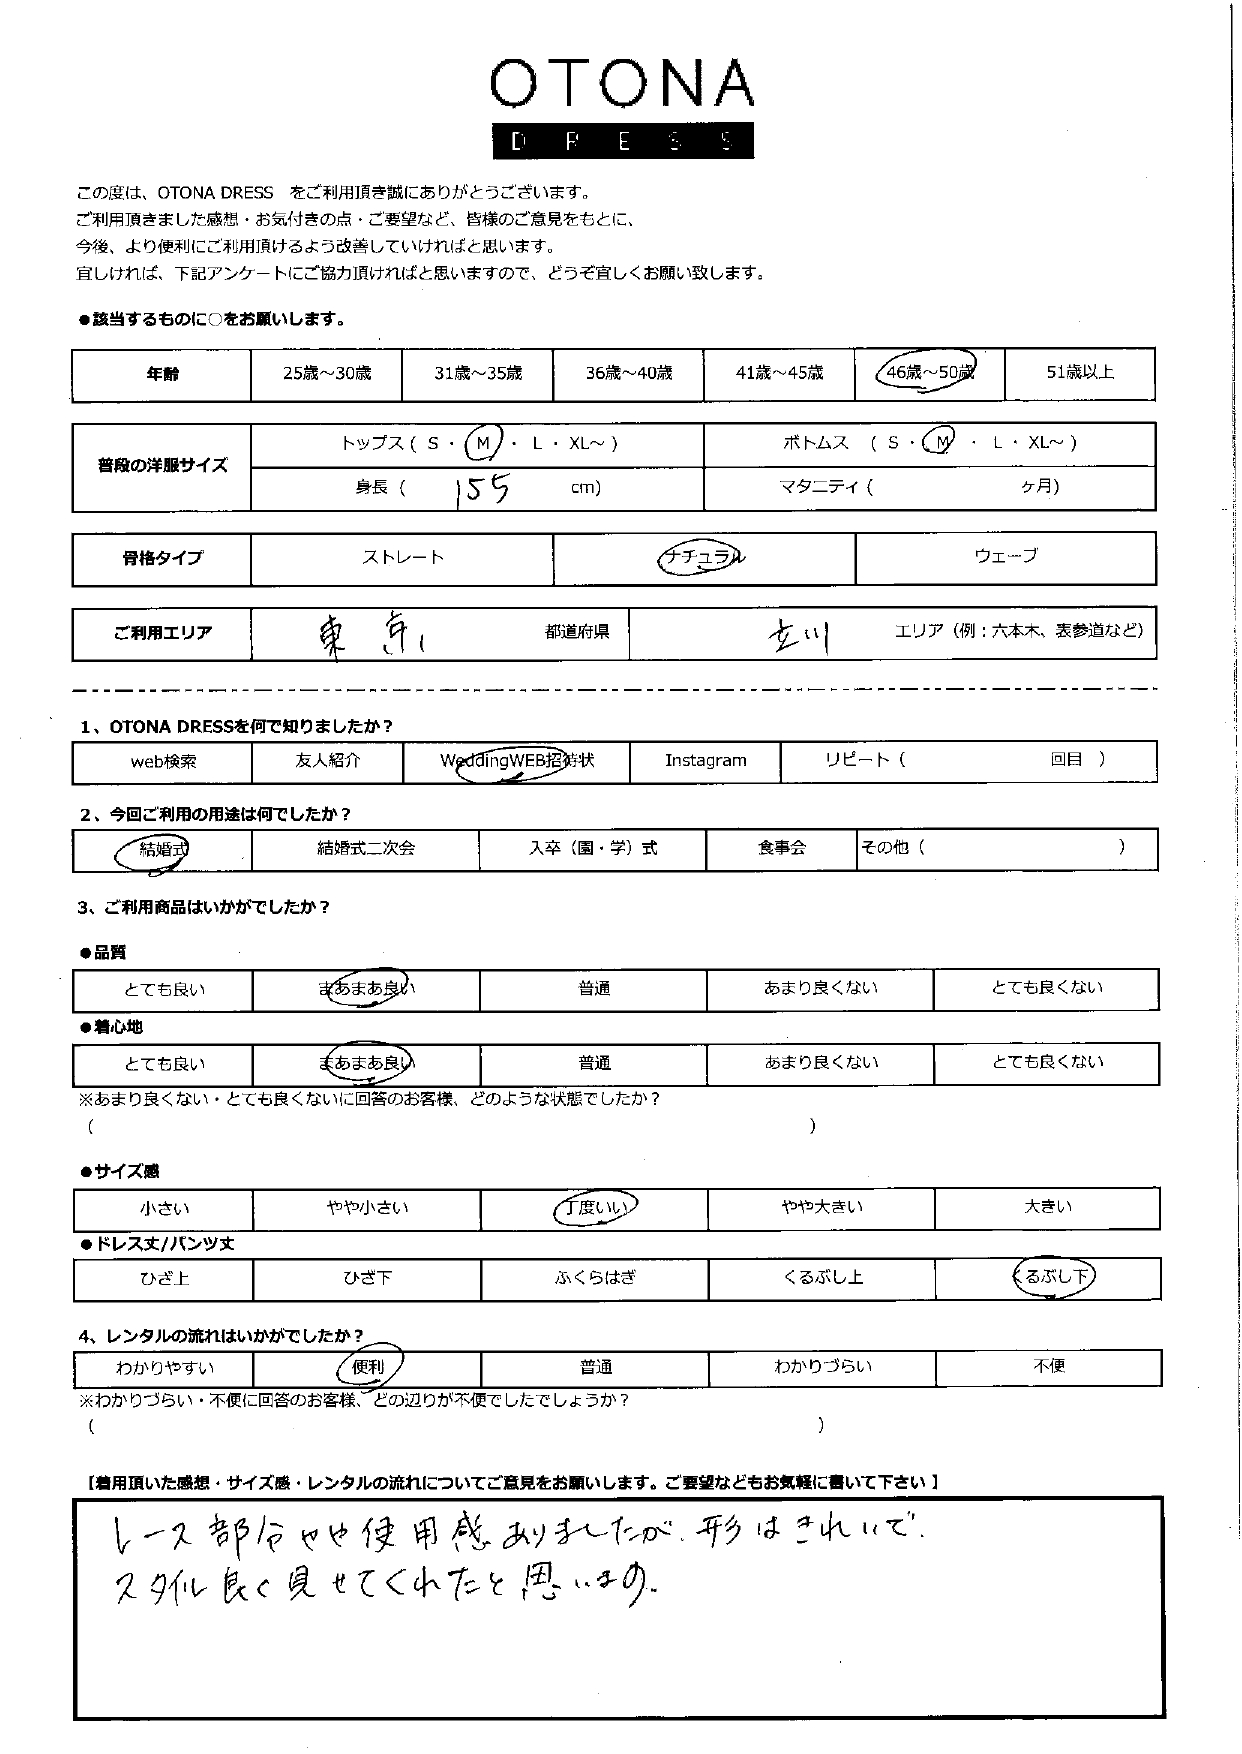 OTONA
DRESS
この度は、OTONA DRESS をご利用頂き誠にありがとうございます。
ご利用頂きました感想・お気付きの点・ご要望など、皆様のご意見をもとに、
今後、より便利にご利用頂けるよう改善していければと思います。
宜しければ、下記アンケートにご協力頂ければと思いますので、どうぞ宜しくお願い致します。
●該当するものに○をお願いします。
年齢 25歳～30歳 31歳～35歳 36歳～40歳 41歳～45歳 46歳～50歳 51歳以上
普段の洋服サイズ トップス ( S ・ M ・ L ・ XL～ ) ボトムス ( S ・ M ・ L ・ XL～ )
身長 ( 155 cm) マタニティ ( ヶ月)
骨格タイプ ストレート ナチュラル ウェーブ
ご利用エリア 東京 都道府県 立川 エリア（例：六本木、表参道など）
1、OTONA DRESSを何で知りましたか？
web検索 友人紹介 WeddingWEB招待状 Instagram リピート ( 回目 )
2、今回ご利用の用途は何でしたか？
結婚式 結婚式二次会 入卒（園・学）式 食事会 その他 ( )
3、ご利用商品はいかがでしたか？
●品質
とても良い まあまあ良い 普通 あまり良くない とても良くない
●着心地
とても良い まあまあ良い 普通 あまり良くない とても良くない
※あまり良くない・とても良くないに回答のお客様、どのような状態でしたか？
( )
●サイズ感
小さい やや小さい 丁度いい やや大きい 大きい
●ドレス丈/パンツ丈
ひざ上 ひざ下 ふくらはぎ くるぶし上 くるぶし下
4、レンタルの流れはいかがでしたか？
わかりやすい 便利 普通 わかりづらい 不便
※わかりづらい・不便に回答のお客様、どの辺りが不便でしたでしょうか？
( )
【着用頂いた感想・サイズ感・レンタルの流れについてご意見をお願いします。ご要望などもお気軽に書いて下さい 】
レース部分やや使用感ありましたが、形はきれいで、
スタイル良く見せてくれたと思います。